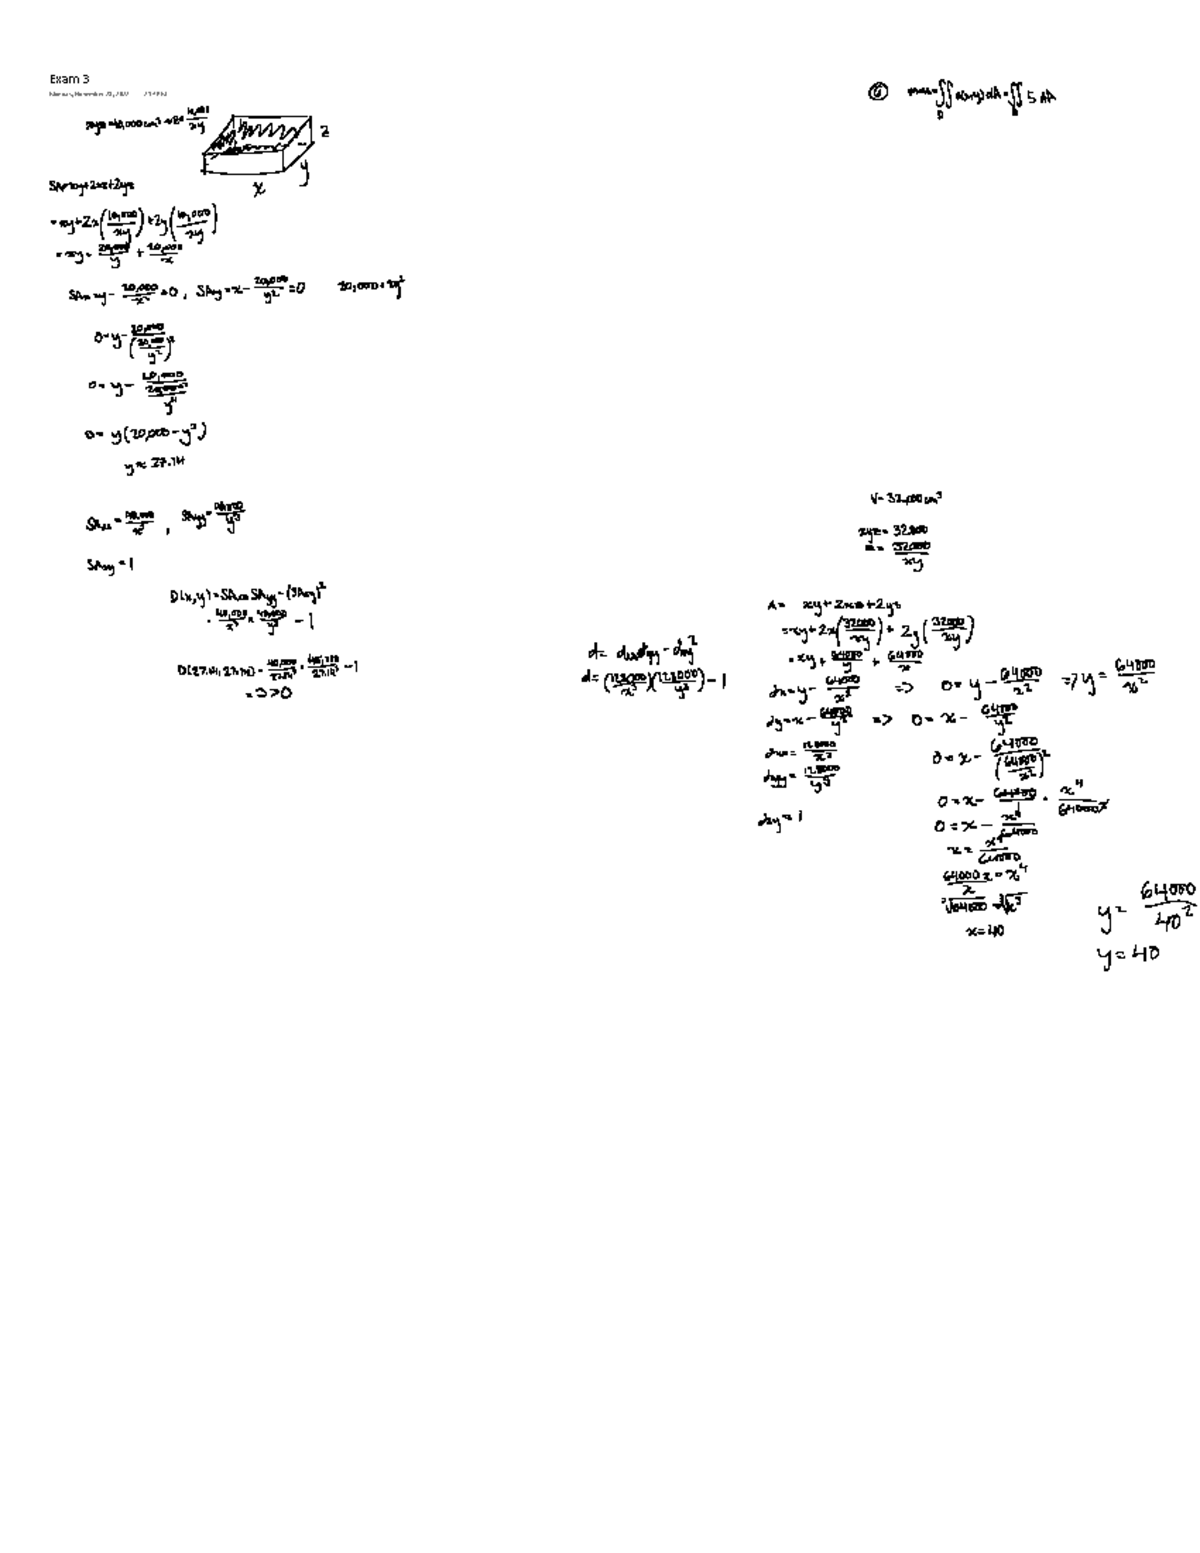 Exam 3
xyz = 10,000 cm³ → z = 10,000/xy
z
y
x
SA = xy + 2xz + 2yz
= xy + 2x(10,000/xy) + 2y(10,000/xy)
= xy + 20,000/y + 20,000/x
SAx = y - 20,000/x² = 0, SAy = x - 20,000/y² = 0
0 = y - 20,000/(20,000/y²)²
0 = y - 20,000/(20,000²/y⁴)
0 = y(20,000 - y³)
y ≈ 27.14
SAxx = 40,000/x³, SAyy = 40,000/y³
SAxy = 1
D(x,y) = SAxx SAyy - (SAxy)²
= 40,000/x³ · 40,000/y³ - 1
D(27.14, 27.14) = 40,000/27.14³ · 40,000/27.14³ - 1
= 3 > 0
d = dxx dyy - dxy²
d = (128000/x³)(128000/y³) - 1
⑥ mass = ∬ σ(x,y) dA = ∬ 5 dA
D
V = 32,000 cm³
xyz = 32000
z = 32000/xy
A = xy + 2xz + 2yz
= xy + 2x(32000/xy) + 2y(32000/xy)
= xy + 64000/y + 64000/x
dx = y - 64000/x² => 0 = y - 64000/x² => y = 64000/x²
dy = x - 64000/y² => 0 = x - 64000/y²
dxx = 128000/x³
dyy = 128000/y³
dxy = 1
0 = x - 64000/(64000/x²)²
0 = x - 64000/1 · x⁴/64000²
0 = x - x⁴/64000
x = x⁴/64000
64000x/x = x⁴
³√64000 = ³√x³
x = 40
y = 64000/40²
y = 40